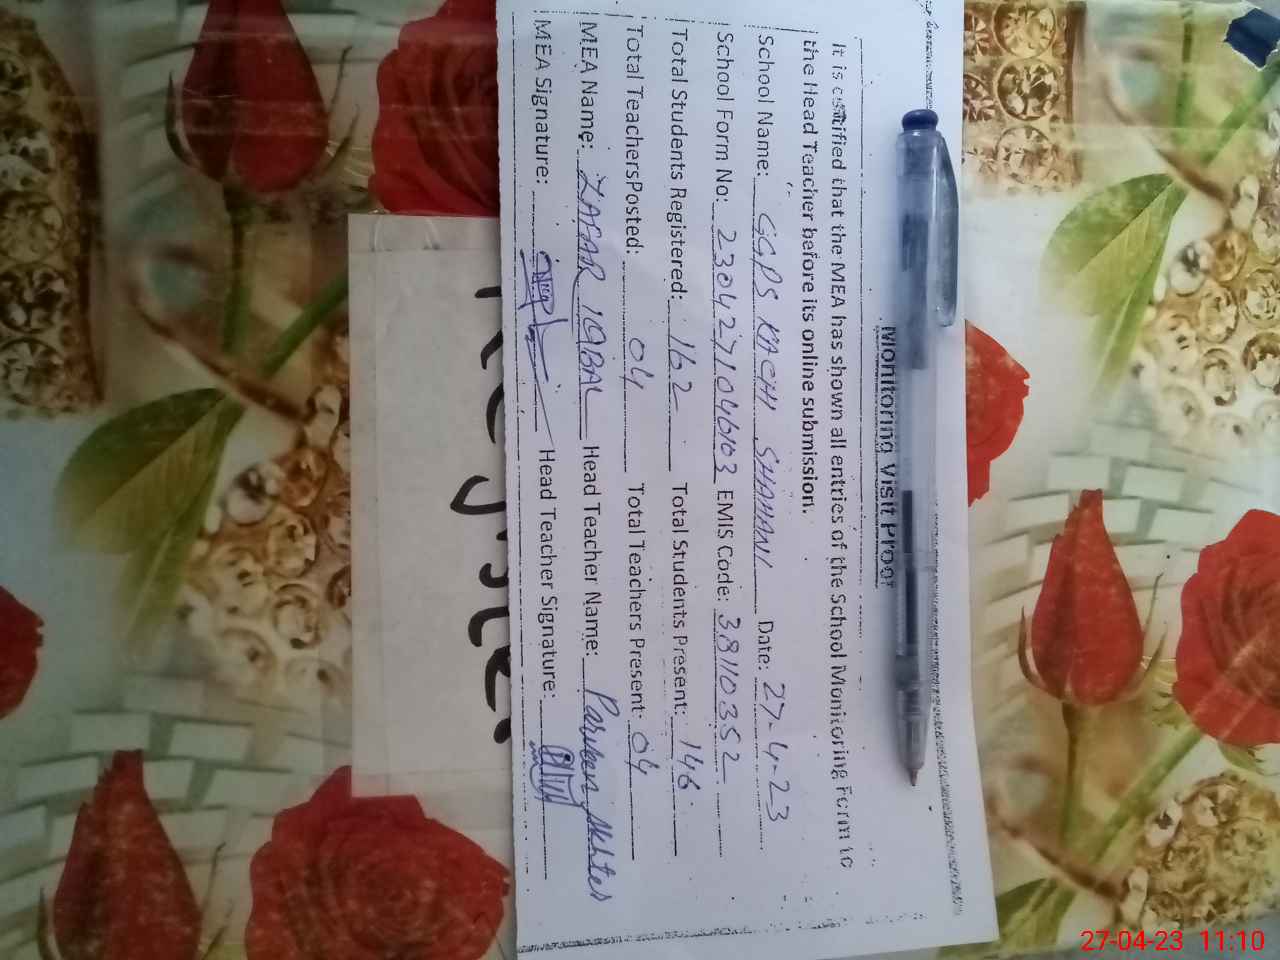 Monitoring Visit Proof
It is certified that the MEA has shown all entries of the School Monitoring Form to
the Head Teacher before its online submission.
School Name: GGPS KACHI SHAHANI Date: 27-4-23
School Form No: 230427104603 EMIS Code: 38110352
Total Students Registered: 162 Total Students Present: 146
Total TeachersPosted: 04 Total Teachers Present: 04
MEA Name: ZAFAR IQBAL Head Teacher Name: Parveen Akhter
MEA Signature: Head Teacher Signature:
27-04-23 11:10